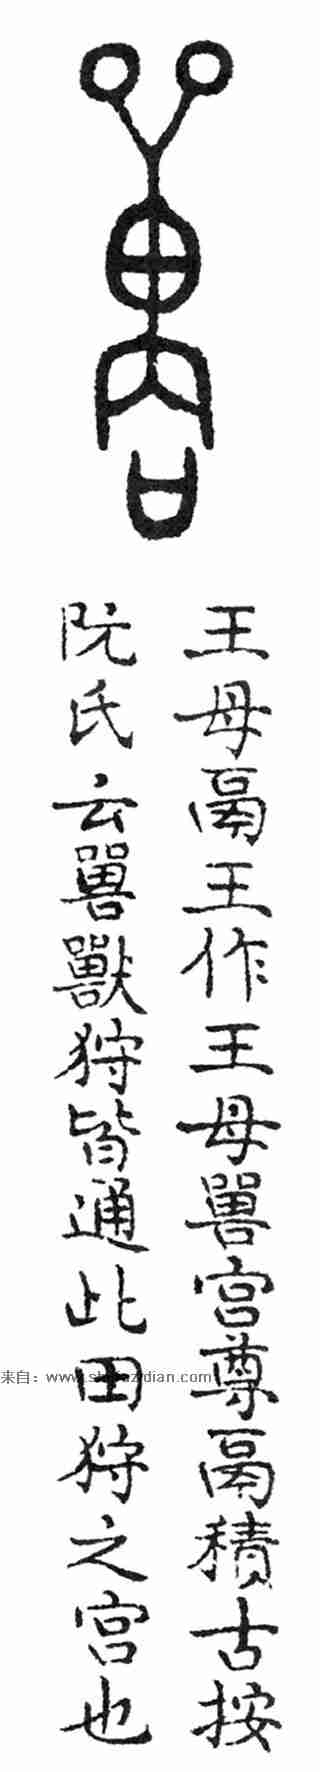 嘼
王母鬲王作王母嘼宫尊鬲積古按
阮氏云嘼獸狩皆通此田狩之宫也
来自：www.shufazidian.com